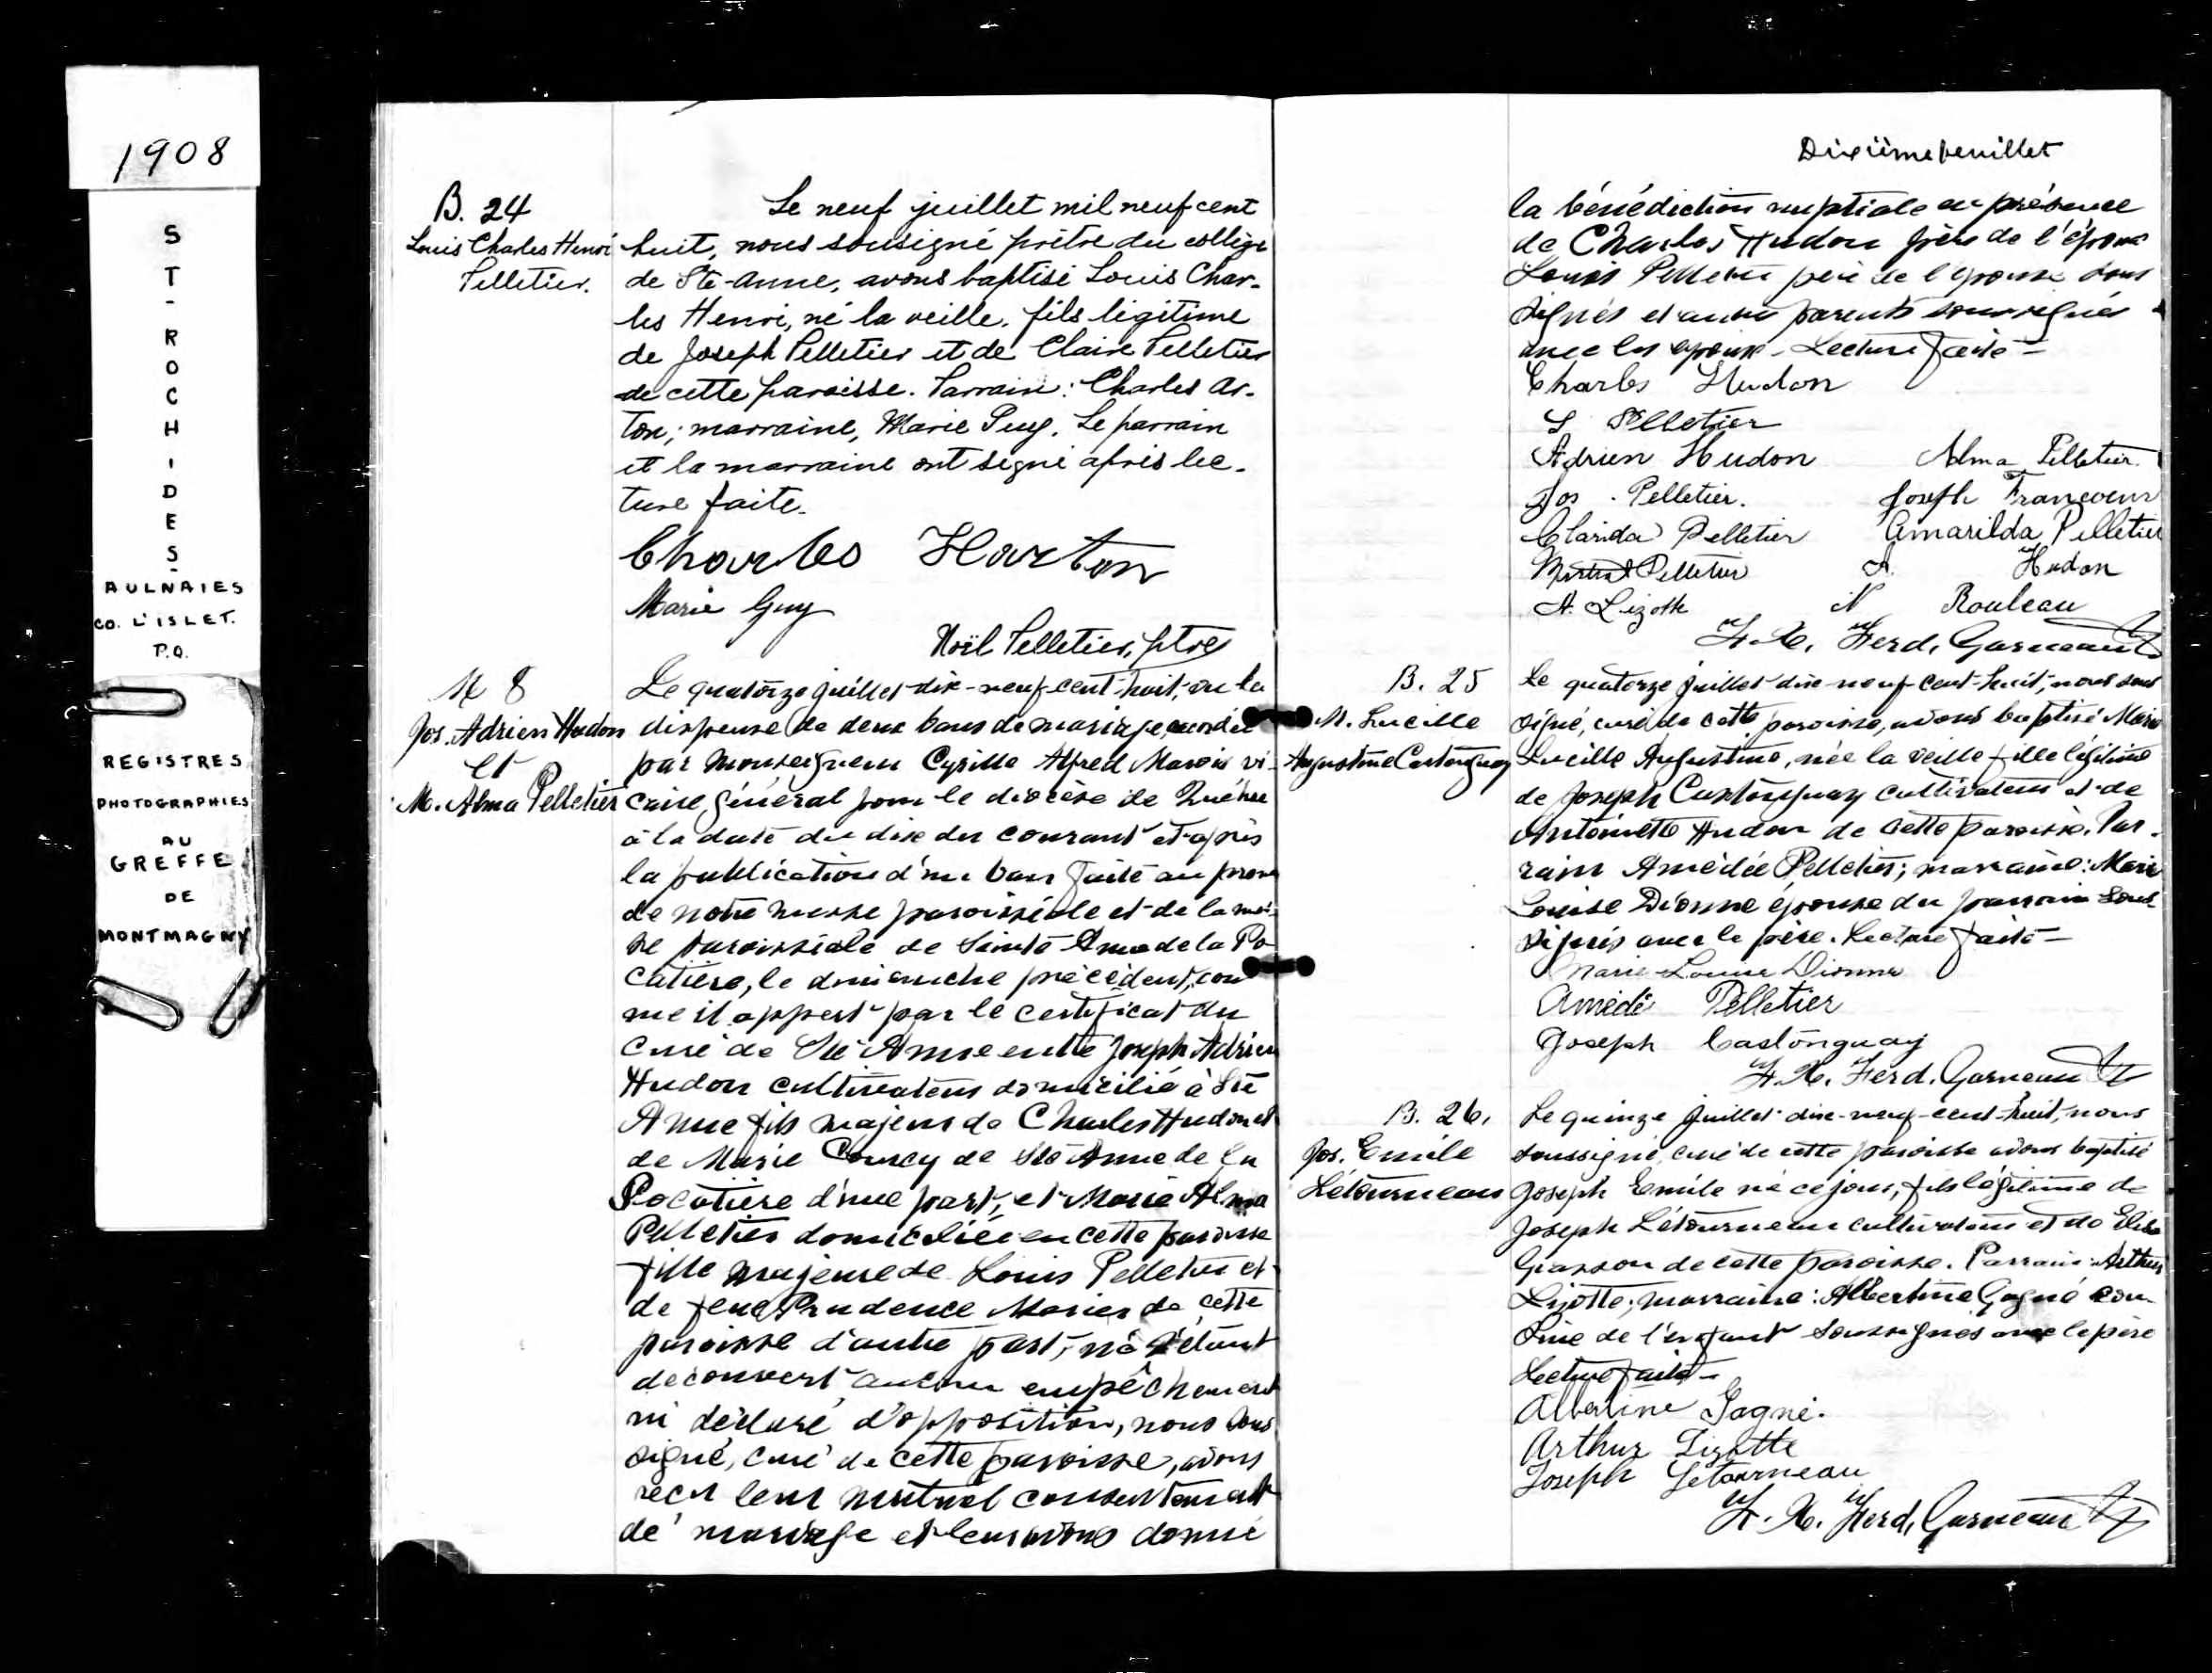 1908
S
T
-
R
O
C
H
-
D
E
S
-
AULNAIES
CO. L'ISLET.
P.Q.
REGISTRES
PHOTOGRAPHIES
AU
GREFFE
DE
MONTMAGNY
B. 24
Louis Charles Henri
Pelletier.
Le neuf juillet mil neuf cent
huit, nous sousigné prêtre du collège
de Ste-Anne, avons baptisé Louis Char-
les Henri, né la veille, fils légitime
de Joseph Pelletier et de Claire Pelletier
de cette paroisse. Parrain: Charles Ar-
ton; marraine, Marie Guy. Le parrain
et la marraine ont signé après lec-
ture faite.
Charles Harton
Marie Guy
Noël Pelletier, ptre
M 8
Jos. Adrien Hudon
et
M. Alma Pelletier
Le quatorze juillet dix-neuf-cent-huit, vu la
dispense de deux bans de mariage accordée
par Monseigneur Cyrille Alfred Marois vi-
caire général pour le diocèse de Québec
à la date du dix du courant et après
la publication d'un ban faite au prone
de notre messe paroissiale et de la mes-
se paroissiale de Sainte Anne de la Po-
catière, le dimanche précédent, com
me il appert par le certificat du
curé de Ste Anne entre Joseph Adrien
Hudon cultivateur domicilié à Ste
Anne fils majeur de Charles Hudon et
de Marie Courcy de Ste Anne de la
Pocatière d'une part, et Marie Alma
Pelletier domiciliée en cette paroisse
fille majeure de Louis Pelletier et
de feue Prudence Morier de cette
paroisse d'autre part, ne s'étant
découvert aucun empêchement
ni déclaré d'opposition, nous sous
signé, curé de cette paroisse, avons
reçu leur mutuel consentement
de mariage et leur avons donné
Dixième feuillet
la bénédiction nuptiale en présence
de Charles Hudon frère de l'époux
Louis Pelletier père de l'épouse sous
signés et autres parents soussignés
avec les époux - Lecture faite -
Charles Hudon
L Pelletier
Adrien Hudon Alma Pelletier
Jos. Pelletier. Joseph Francoeur
Clarida Pelletier Amarilda Pelletier
Martial Pelletier A. Hudon
A. Lizotte N Rouleau
F. X. Ferd. Garneau Ptr
B. 25
M. Lucille
Augustine Castonguay
Le quatorze juillet dix-neuf-cent-huit, nous sous
signé, curé de cette paroisse, avons baptisé Marie
Lucille Augustine, née la veille fille légitime
de Joseph Castonguay cultivateur et de
Antoinette Hudon de cette paroisse. Par-
rain Amédée Pelletier; marraine: Marie
Louise Dionne épouse du parrain sous-
signés avec le père. Lecture faite -
Marie-Louise Dionne
Amédé Pelletier
Joseph Castonguay
F. X. Ferd. Garneau Ptr
B. 26.
Jos. Emile
Létourneau
Le quinze juillet dix-neuf-cent-huit, nous
soussigné, curé de cette paroisse avons baptisé
Joseph Emile né ce jour, fils légitime de
Joseph Létourneau cultivateur et de Elise
Grasson de cette paroisse. Parrain: Arthur
Lizotte; marraine: Albertine Gagné cou-
sine de l'enfant soussignés avec le père
Lecture faite -
Albertine Gagné.
Arthur Lizotte
Joseph Letourneau
F. X. Ferd. Garneau Ptr